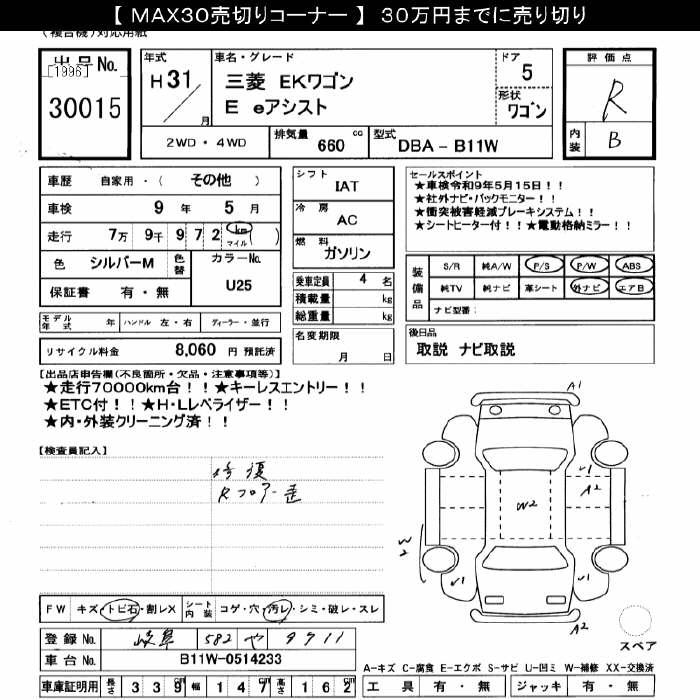 【 MAX30売切りコーナー 】 30万円までに売り切り
(複合機)対応用紙
出品No. [1996] 30015
年式 H31 / 月
車名・グレード 三菱 EKワゴン E eアシスト
ドア 5
形状 ワゴン
評価点 R
内装 B
2WD・4WD 排気量 660 cc 型式 DBA - B11W
車歴 自家用・( その他 )
車検 9 年 5 月
走行 7万 9千 9 7 2 km マイル ( )
色 シルバーM 色替 カラーNo. U25
保証書 有・無
シフト IAT
冷房 AC
燃料 ガソリン
乗車定員 4 名
積載量 kg
総重量 kg
名変期限 月 日
セールスポイント
★車検令和9年5月15日!!
★社外ナビ・バックモニター!!
★衝突被害軽減ブレーキシステム!!
★シートヒーター付!!★電動格納ミラー!!
装備品 S/R 純A/W P/S P/W ABS
純TV 純ナビ 革シート 外ナビ エアB
ナビ型番:
モデル年式 年 ハンドル 左・右 ディーラー・並行
リサイクル料金 8,060 円 預託済
後日品
取説 ナビ取説
【出品店申告欄(不良箇所・欠品・注意事項等)】
★走行70000km台!!★キーレスエントリー!!
★ETC付!!★H・Lレベライザー!!
★内・外装クリーニング済!!
【検査員記入】
修復
Rフロアー歪
A1
√1
√1
A2
W2
W2
√1
√1
A2
FW キズ・トビ石・割レX シート内装 コゲ・穴・汚レ・シミ・破レ・スレ
登録No. 岐阜 582 や 9711
車台No. B11W-0514233
車庫証明用 長さ 3 3 9 cm 幅 1 4 7 cm 高さ 1 6 2 cm
スペア
A-キズ C-腐食 E-エクボ S-サビ U-凹ミ W-補修 XX-交換済
工具 有・無 ジャッキ 有・無